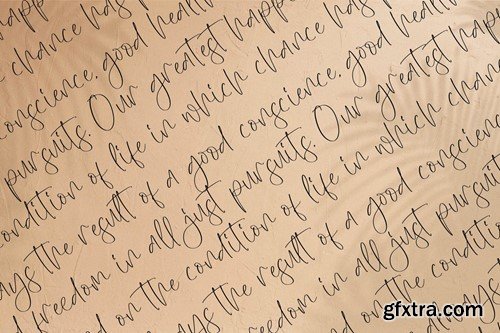 happ
chance has
conscience, good health
pursuits. Our greatest happ
condition of life in which chance has
ays the result of a good conscience, good health
d freedom in all just pursuits. Our greatest happ
d on the condition of life in which chance
ays the result of a good conscience
freedom in all just pursuits
d on the condition
gfxtra.com